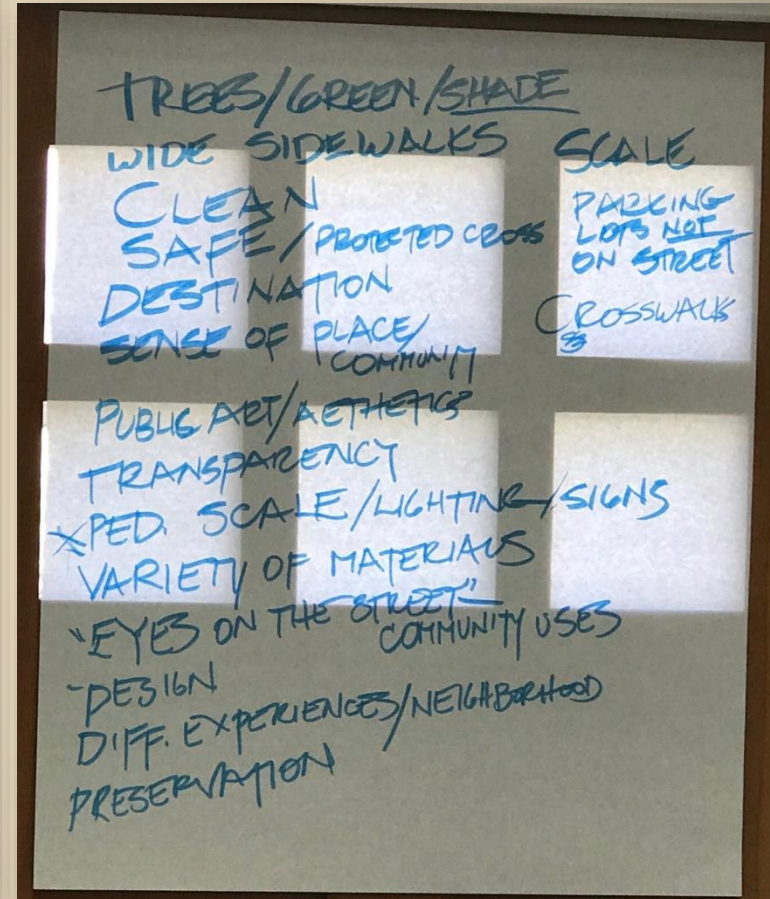 TREES/GREEN/SHADE
WIDE SIDEWALKS
CLEAN
SAFE/PROTECTED CROSS
DESTINATION
SENSE OF PLACE/
COMMUNITY
PUBLIC ART/AETHETICS
TRANSPARENCY
PED. SCALE/LIGHTING/SIGNS
VARIETY OF MATERIALS
"EYES ON THE STREET"—
COMMUNITY USES
-DESIGN
DIFF. EXPERIENCES/NEIGHBORHOOD
PRESERVATION
SCALE
PARKING
LOTS NOT
ON STREET
CROSSWALKS